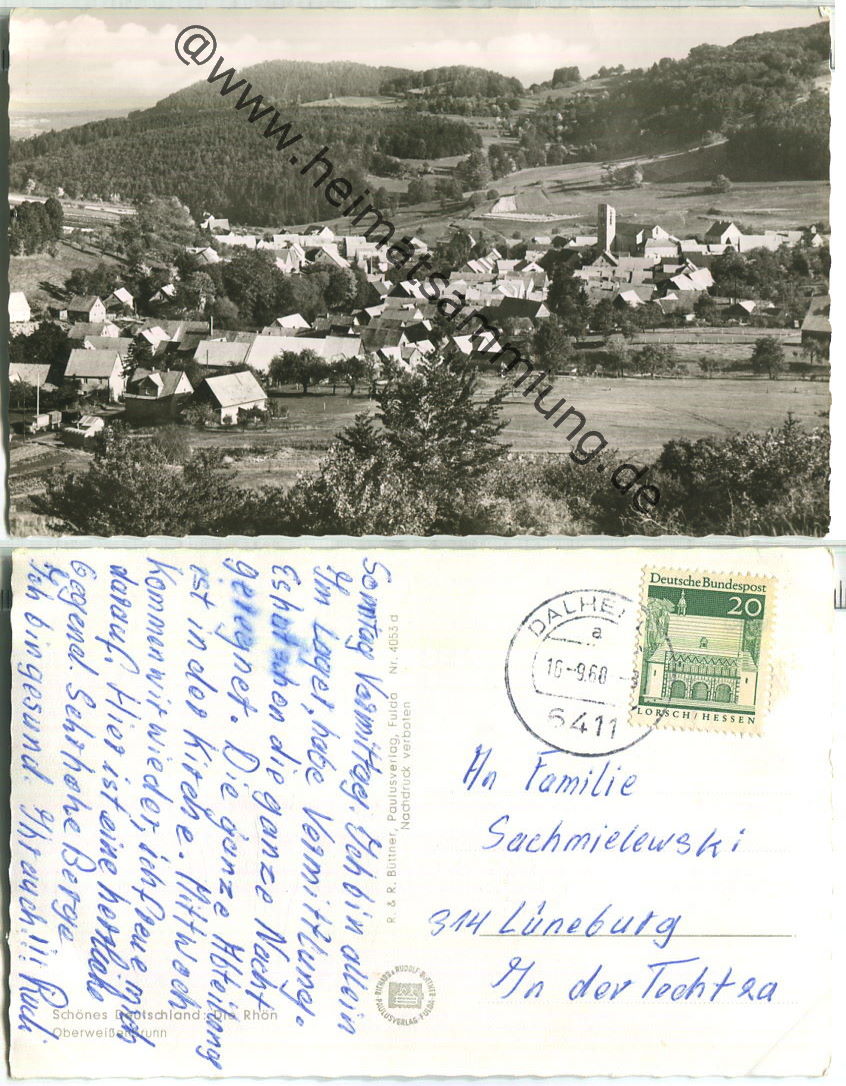 @www.heimatsammlung.de
Sonntag Vormittag. Ich bin allein
Im Lager, habe Vermittlung.
Es hat uhen die ganze Nacht
geregnet. Die ganze Abteilung
ist in der Kirche. Mittwoch
Kommen wir wieder, ich freue mich
darauf. Hier ist eine herrliche
Gegend. Sehr hohe Berge
Ich bin gesund Ihr auch!!! Rudi
Schönes Deutschland: Die Rhön
Oberweißenbrunn
R. & R. Büttner, Paulusverlag, Fulda Nr. 4053 d
Nachdruck verboten
RICHARD & RUDOLF BÜTTNER
PAULUSVERLAG FULDA
DALHE
a
16-9.68
6411
Deutsche Bundespost
20
LORSCH/HESSEN
An Familie
Sachmielewski
314 Lüneburg
In der Techt 2a